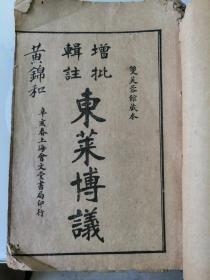 雙芙蓉館藏本
增批
輯註
東萊博議
辛亥春上海會文堂書局印行
黃錦和